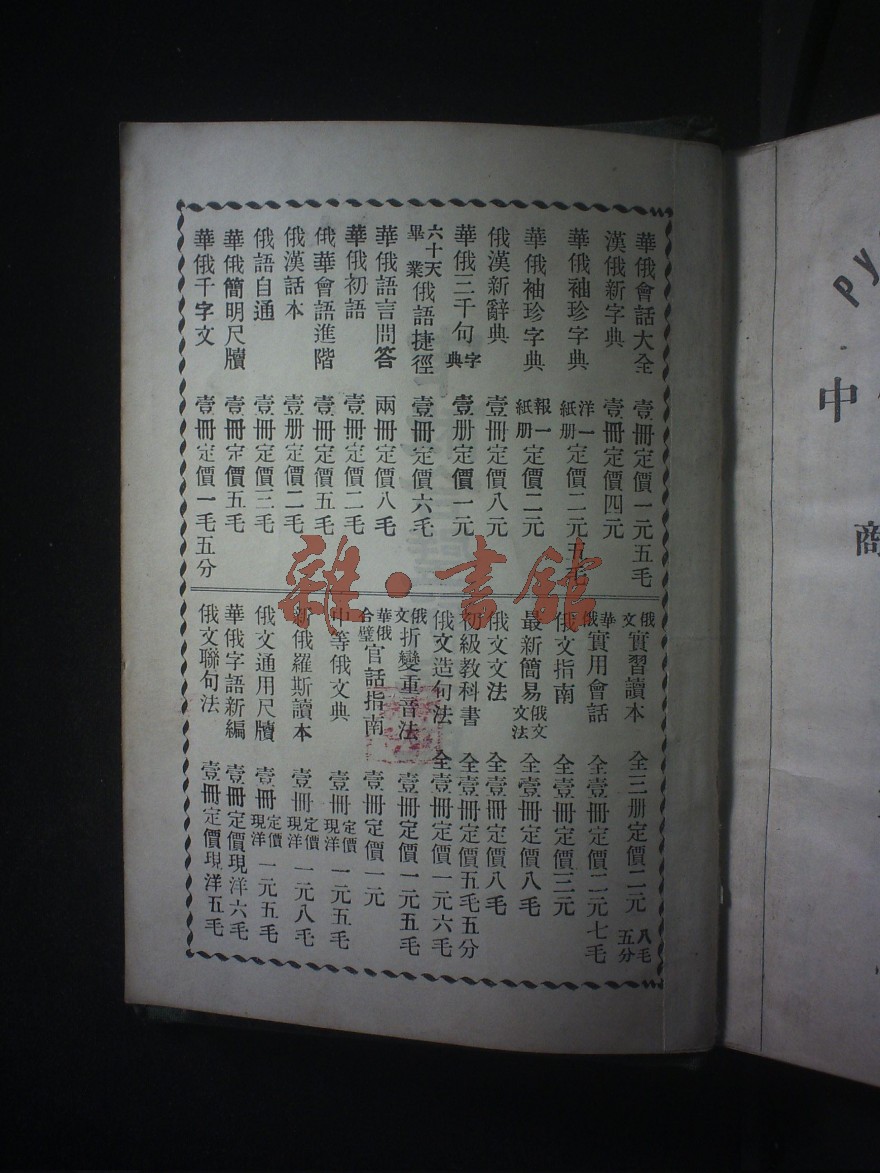 華俄會話大全 壹冊定價一元五毛
漢俄新字典 壹冊定價四元
華俄袖珍字典 洋紙一册定價二元五毛
華俄袖珍字典 報紙一册定價二元
俄漢新辭典 壹冊定價八元
華俄三千句字典 壹册定價一元
六十天畢業俄語捷徑 壹冊定價六毛
華俄語言問答 兩冊定價八毛
華俄初語 壹冊定價二毛
俄華會語進階 壹冊定價五毛
俄漢話本 壹册定價二毛
俄語自通 壹冊定價三毛
華俄簡明尺牘 壹冊定價五毛
華俄千字文 壹冊定價一毛五分
俄文實習讀本 全三册定價二元八毛五分
華俄實用會話 全壹冊定價二元七毛
俄文指南 全壹冊定價三元
最新簡易俄文文法 全壹冊定價八毛
俄文文法 全壹冊定價八毛
初級教科書 全壹冊定價五毛五分
俄文造句法 全壹冊定價一元六毛
俄文折變重音法 壹冊定價一元五毛
華俄合璧官話指南 壹冊定價一元
中等俄文典 壹冊定價現洋一元五毛
新俄羅斯讀本 壹冊定價現洋一元八毛
俄文通用尺牘 壹冊定價現洋一元五毛
華俄字語新編 壹冊定價現洋六毛
俄文聯句法 壹冊定價現洋五毛
雜·書館
РУ
中
商